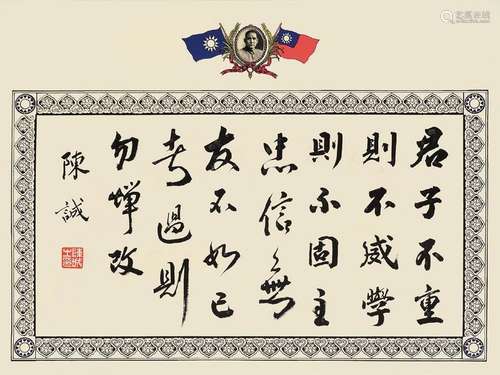 君子不重
則不威學
則不固主
忠信無
友不如己
者過則
勿憚改
陳誠